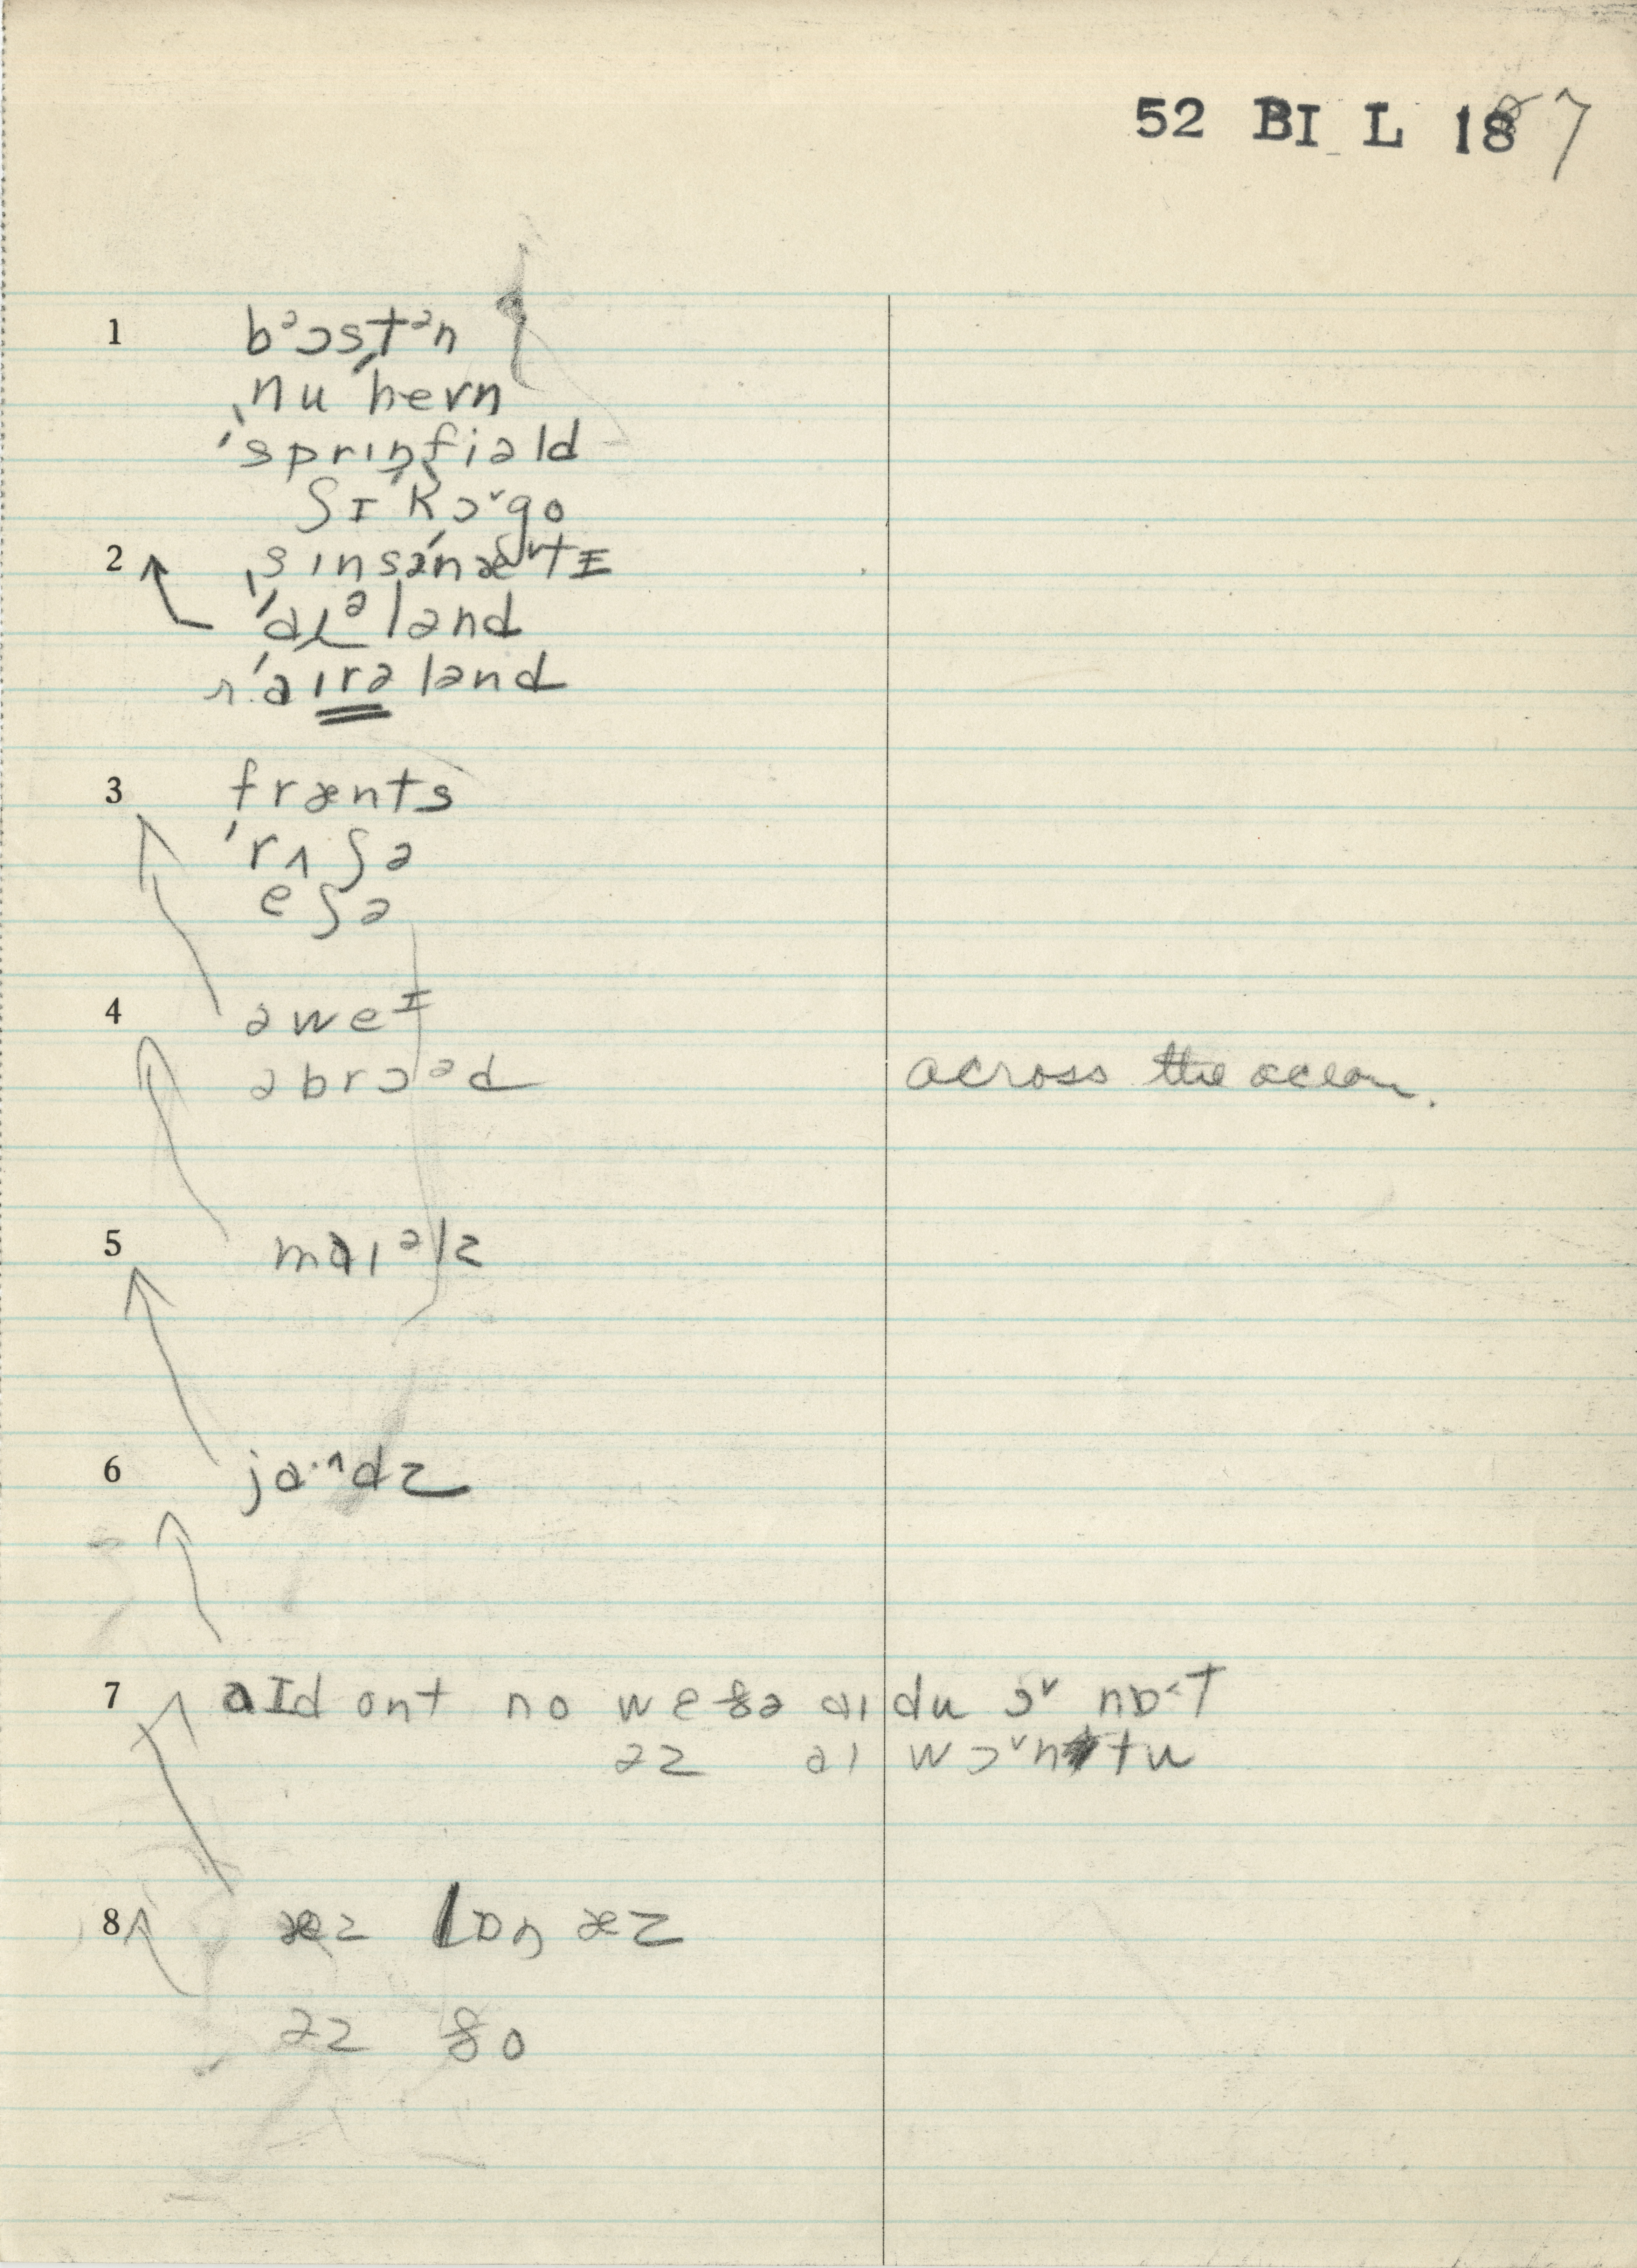 52 BI L 187
1 bᵊɔstᵊn
ˌnu ˈhevn
ˈsprɪŋfiəld
ʃɪˈkɔ˅go
2 ˌsɪnsəˈnæ˅tɪ
ˈaɪᵊlənd
ˈaɪrələnd
3 frænts
ˈrʌʃə
eʃə
4 əweᶦ
əbrɔᵊd
across the ocean.
5 maɪᵊlz
6 jɑ·ʌdz
7 aɪd ont no weðə aɪ du ɔ˅ nɒ˂t
əz aɪ wɔ˅n tu
8 æz lɒŋ æz
əz ðo